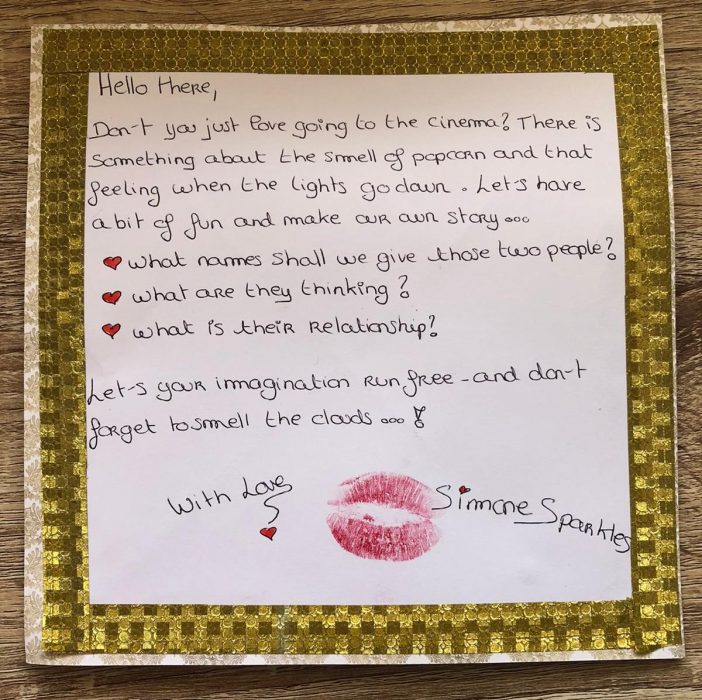 Hello there,
Don't you just love going to the cinema? There is
something about the smell of popcorn and that
feeling when the lights go down. Let's have
a bit of fun and make our own story...
what names shall we give those two people?
what are they thinking?
what is their relationship?
Let's your immagination run free - and don't
forget to smell the clouds...!
With Love
Simone Sparkles